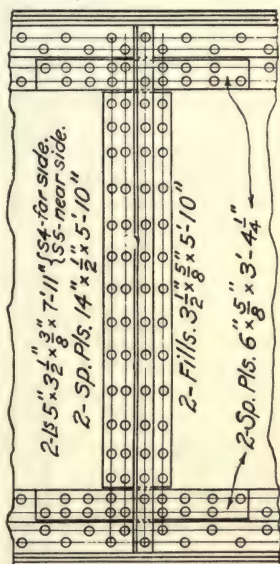 2-Ls 5"×3 1/2"×3/8"×7'-11" {S4-far side.
{S5-near side.
2-Sp. Pls. 14"×1/2"×5'-10"
2-Fills. 3 1/2"×5/8"×5'-10"
2-Sp. Pls. 6"×5/8"×3'-4 1/4"